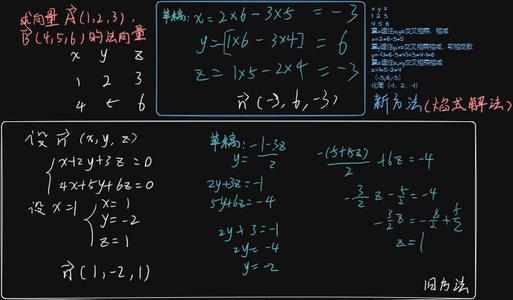 求向量 A(1,2,3),
B(4,5,6)的法向量
x y z
1 2 3
4 5 6
草稿:x=2×6-3×5 =-3
y=-[1×6-3×4] = 6
z=1×5-2×4 =-3
n(-3,6,-3)
x y z
1 2 3
4 5 6
算x遮住x,yz交叉相乘,相减
x=2*6-3*5
算y遮住y,xz交叉相乘,取相反数
算z遮住z,xy交叉相乘相减
z=1*5-2*4
(-3,6,-3)
化简 (-1, 2, -1)
新方法(焰式解法)
设 n(x,y,z)
x+2y+3z=0
4x+5y+6z=0
设 x=1
x=1
y=-2
z=1
n(1,-2,1)
草稿:
y=-1-3z/2
2y+3z=-1
5y+6z=-4
2y+3=-1
2y=-4
y=-2
-(5+15z)/2 +6z=-4
-3/2 z-5/2=-4
-3/2 z=-8/2+5/2
z=1
旧方法